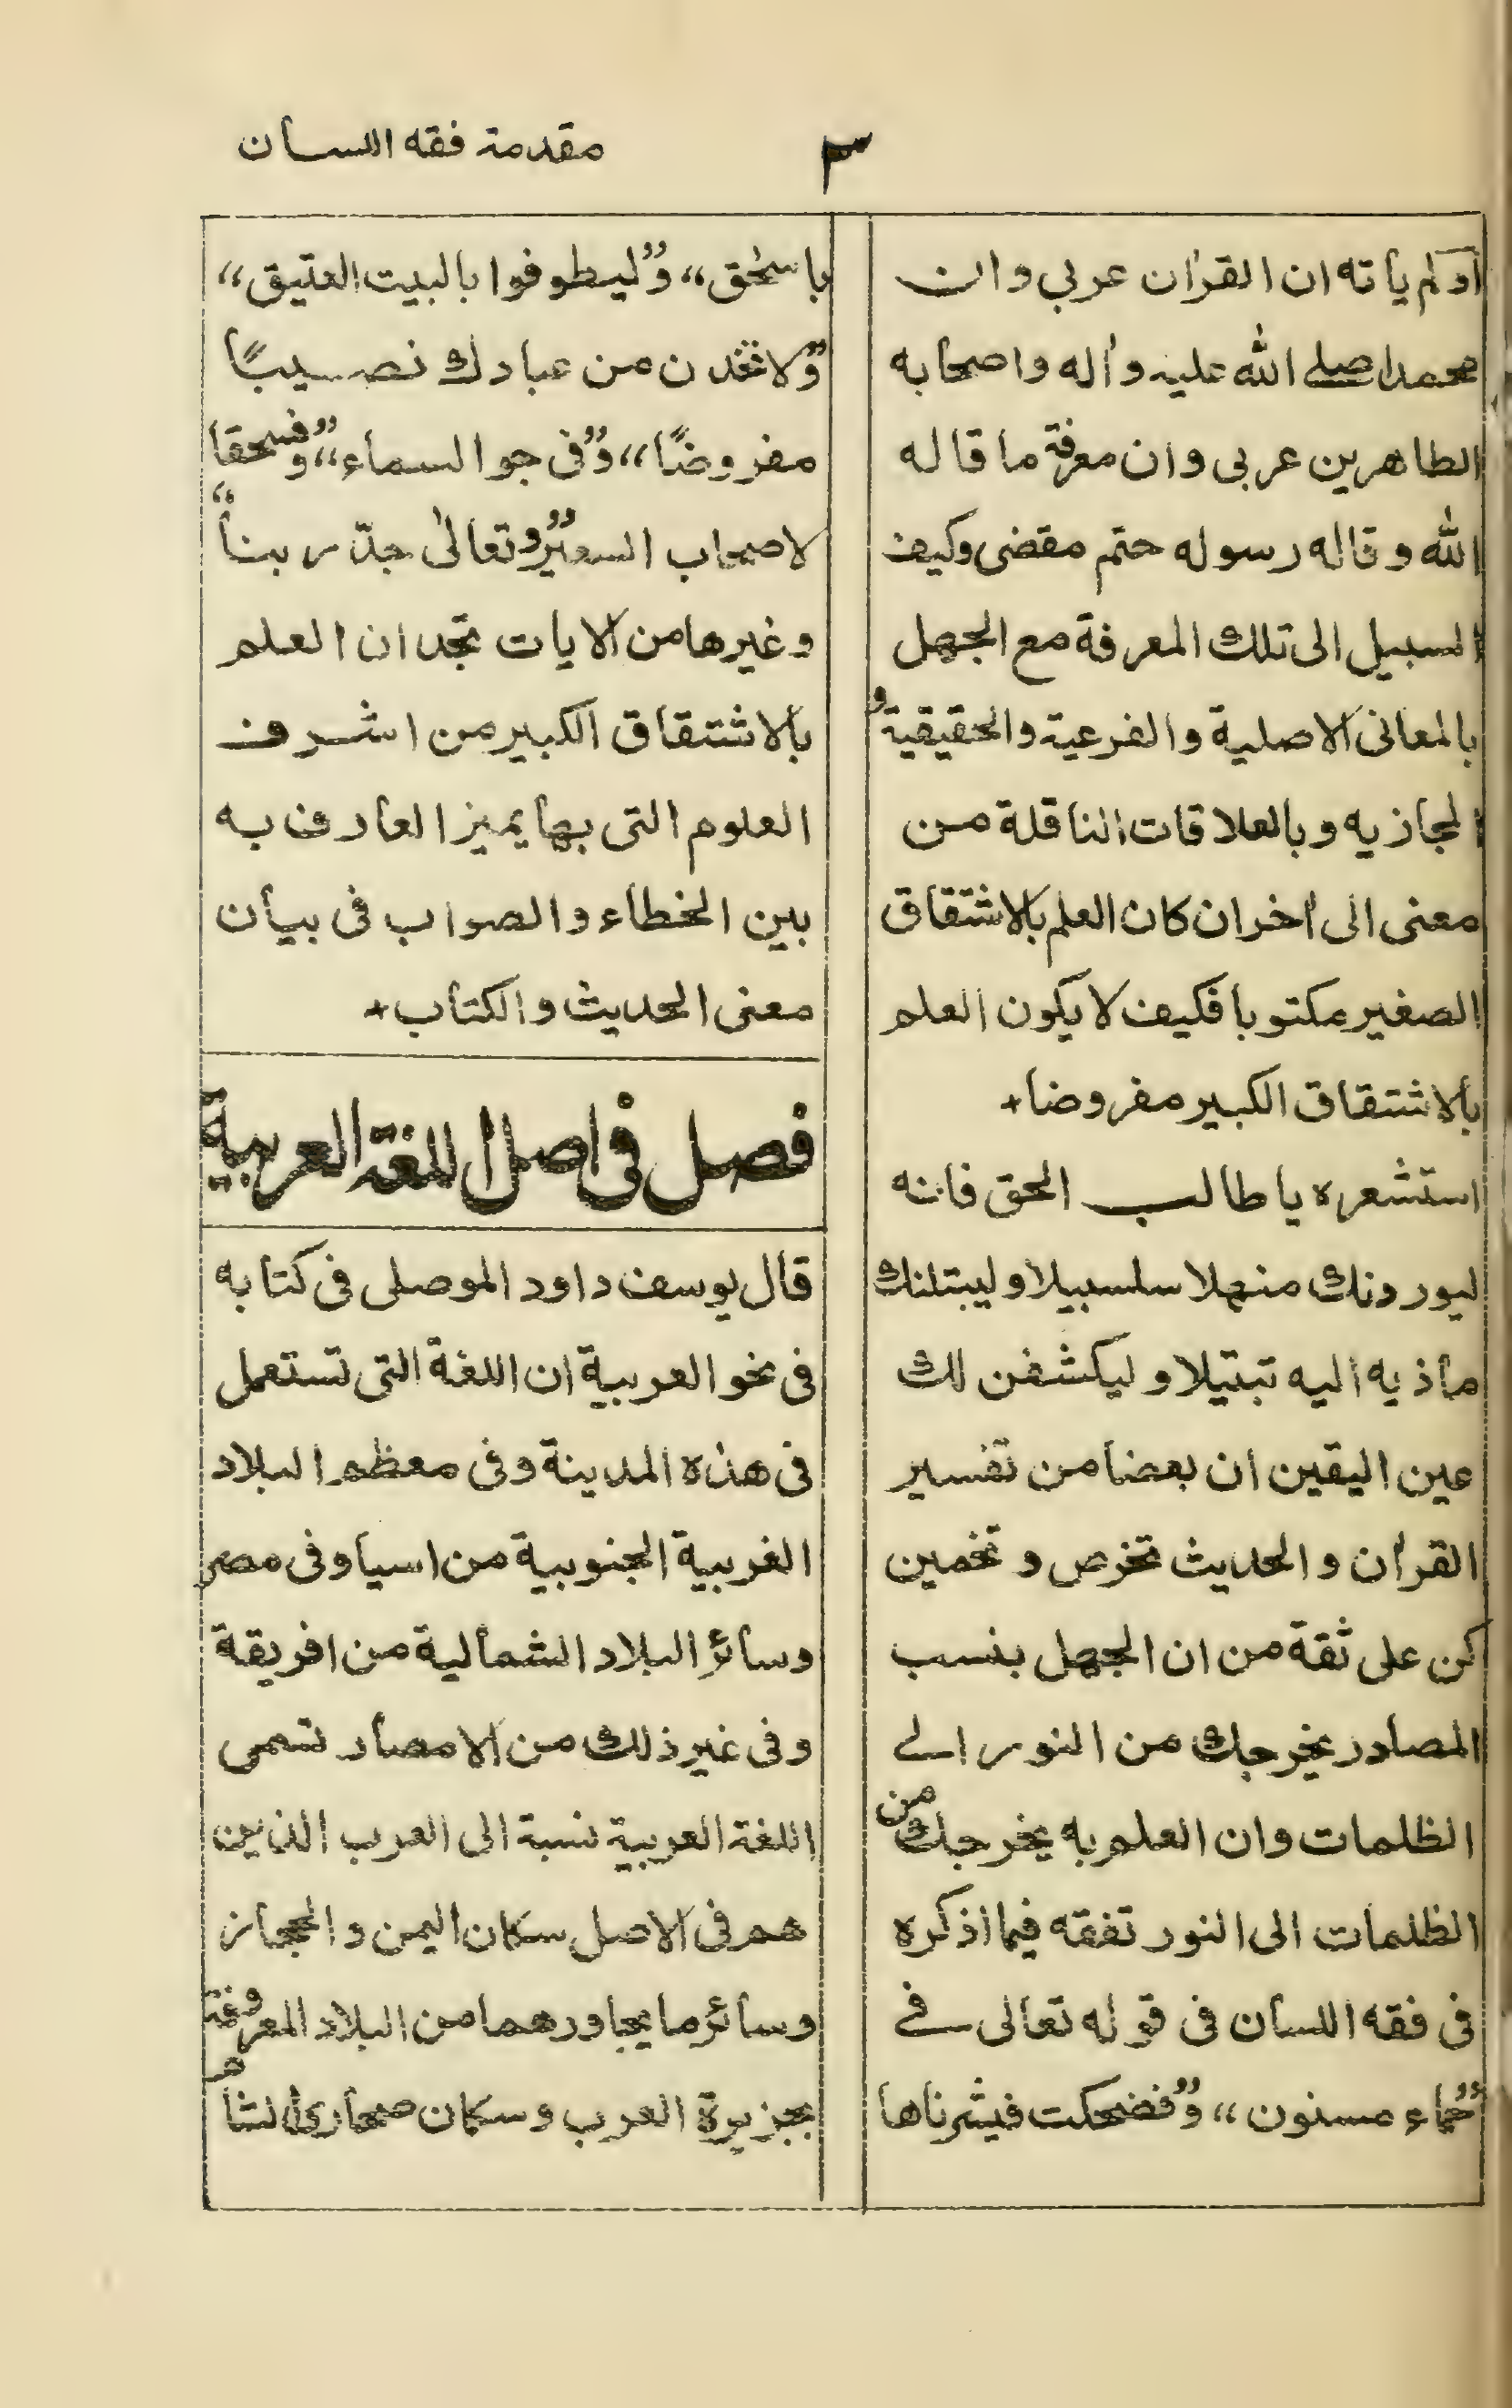 مقدمة فقه اللسان
٣
أولم ياته ان القرأن عربى وان
محمدا صلے الله عليه وأله واصحابه
الطاهرين عربى وان معرفة ما قاله
الله وقاله رسوله حتم مقضى وكيف
السبيل الى تلك المعرفة مع الجهل
بالمعانى الاصلية والفرعية والحقيقية و
المجازيه وبالعلاقات الناقلة من
معنى الى أخران كان العلم بالاشتقاق
الصغير مكتوبا فكيف لا يكون العلم
بالاشتقاق الكبير مفروضا+
استشعره يا طالب الحق فانه
ليوردنك منهلا سلسبيلا وليبتلنك
ماذيه اليه تبتيلا وليكشفن لك
عين اليقين ان بعضا من تفسير
القرأن والحديث تخرص وتخمين
كن على ثقة من ان الجهل بنسب
المصادر يخرجك من النور الے
الظلمات وان العلم به يخرجك من
الظلمات الى النور تفقه فيما اذكره
فى فقه اللسان فى قوله تعالى فے
”حماء مسنون“ و”فضحكت فبشرناها
باسحٰق“ و”ليطوفوا بالبيت العتيق“
و”لاتخذن من عبادك نصيبًا
مفروضًا“ و”فى جو السماء“ و”فسحقا
لاصحاب السعير“ و”تعالىٰ جدّ ربنا“
وغيرها من الايات تجد ان العلم
بالاشتقاق الكبير من اشرف
العلوم التى بها يميز العارف به
بين الخطاء والصواب فى بيان
معنى الحديث والكتاب+
فصل فى اصل اللغة العربية
قال يوسف داود الموصلى فى كتابه
فى نحو العربية ان اللغة التى تستعمل
فى هذه المدينة وفى معظم البلاد
الغربية الجنوبية من اسيا وفى مصر
وسائر البلاد الشمالية من افريقة
وفى غير ذلك من الامصار تسمى
اللغة العربية نسبة الى العرب الذين
هم فى الاصل سكان اليمن والحجاز
وسائر ما يجاورهما من البلاد المعروفة
بجزيرة العرب وسكان صحارى الشام